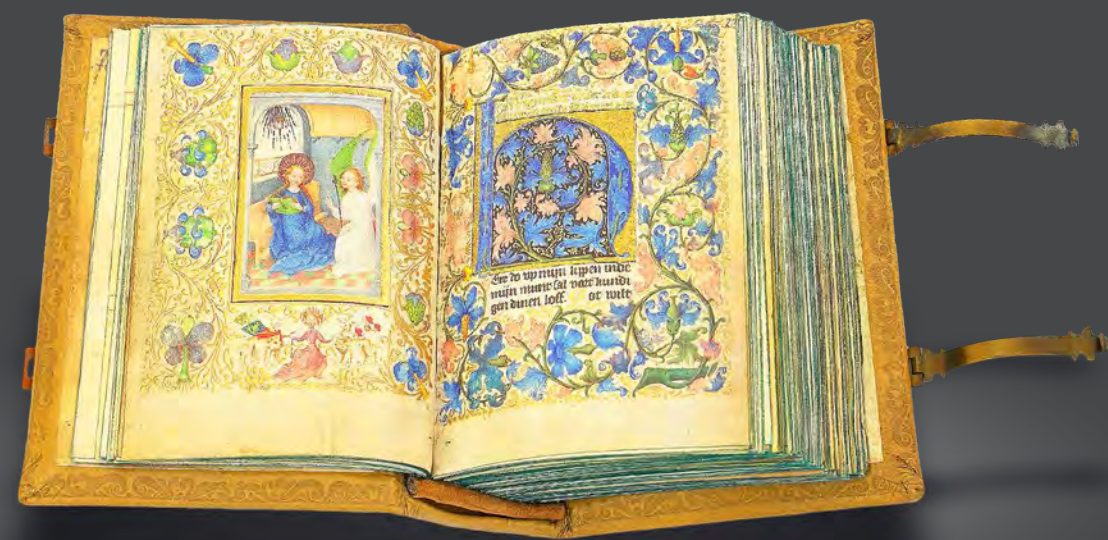 Ere do up mijn lippen inde
mijn munt sal vort kundi
gen dinen loff. ot wilt